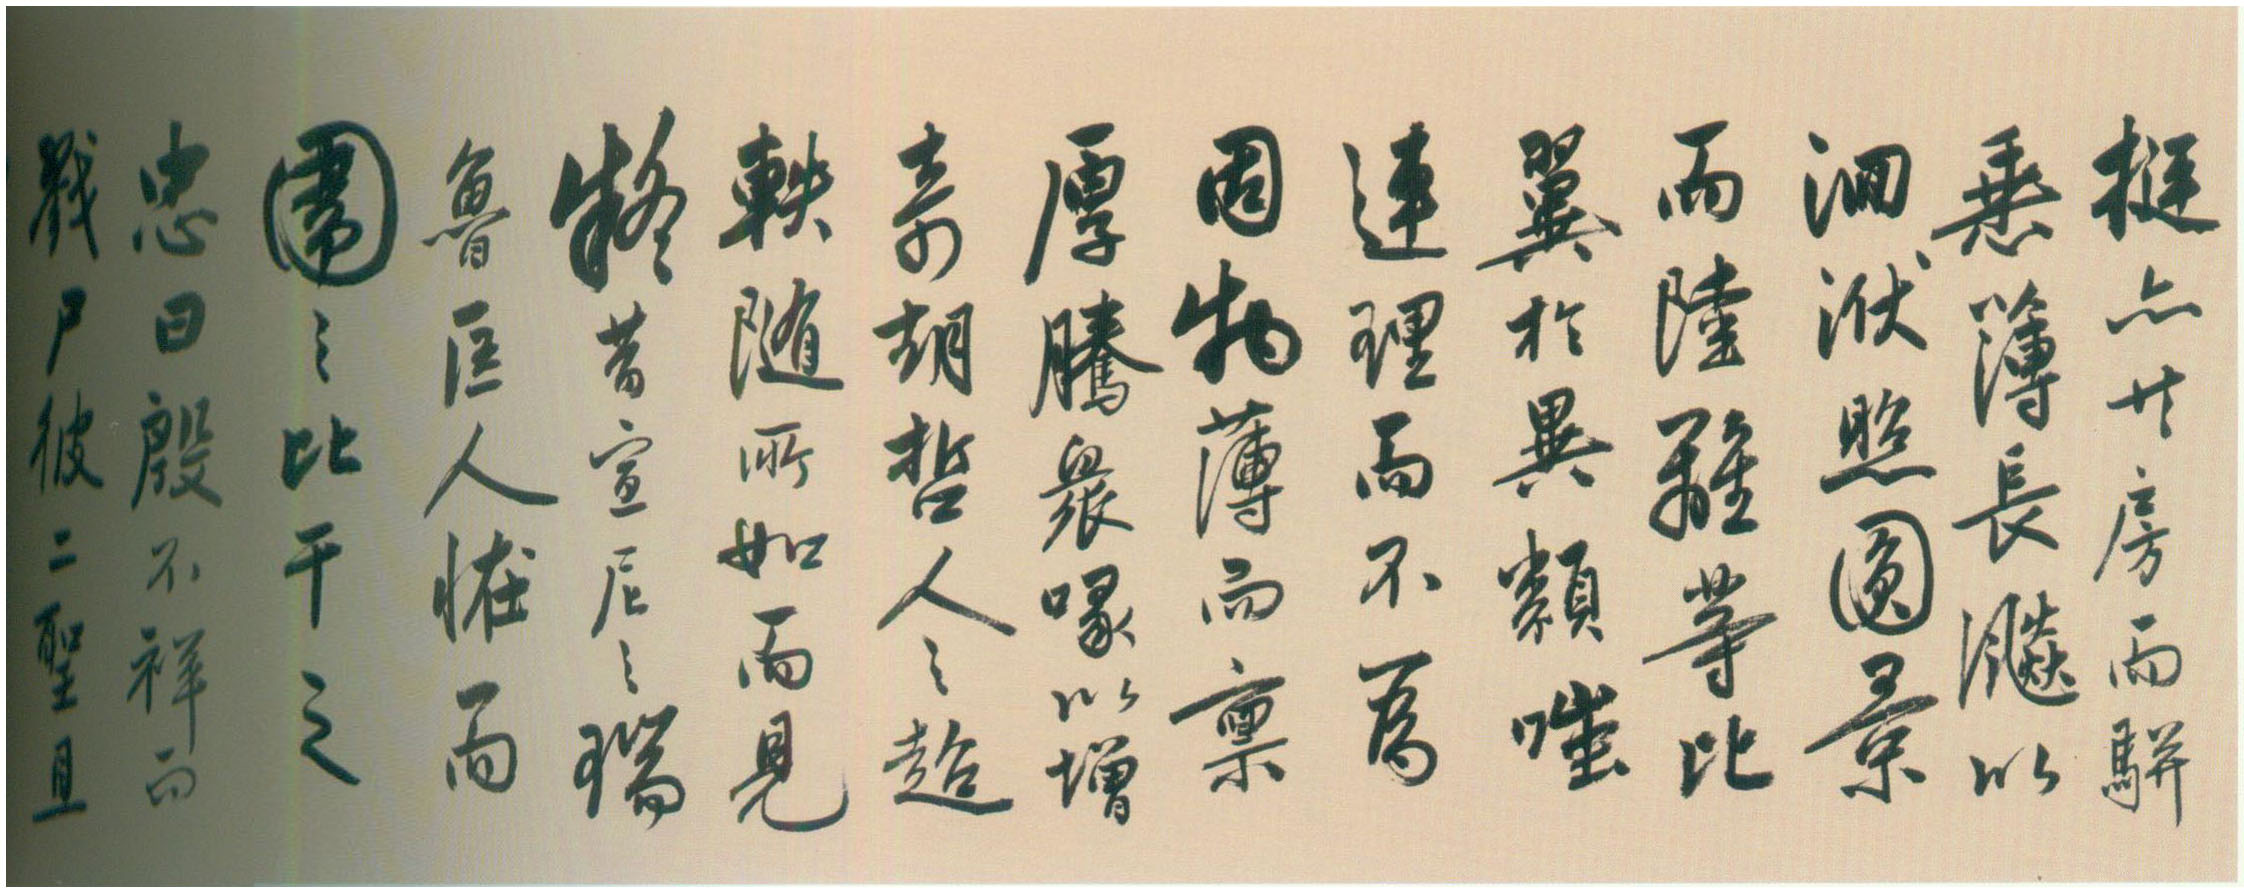 挺亦共房而駢
簿長飈以
洄洑照圓景
而陸離等比
翼於異類嗤
連理而不為
固物薄而稟
厚騰眾喙以增
奇胡哲人之超
軼隨所如而見
疑昔宣尼之瑞
魯匡人怪而
圍之比干之
忠曰殷不祥而
戮尸彼二聖且